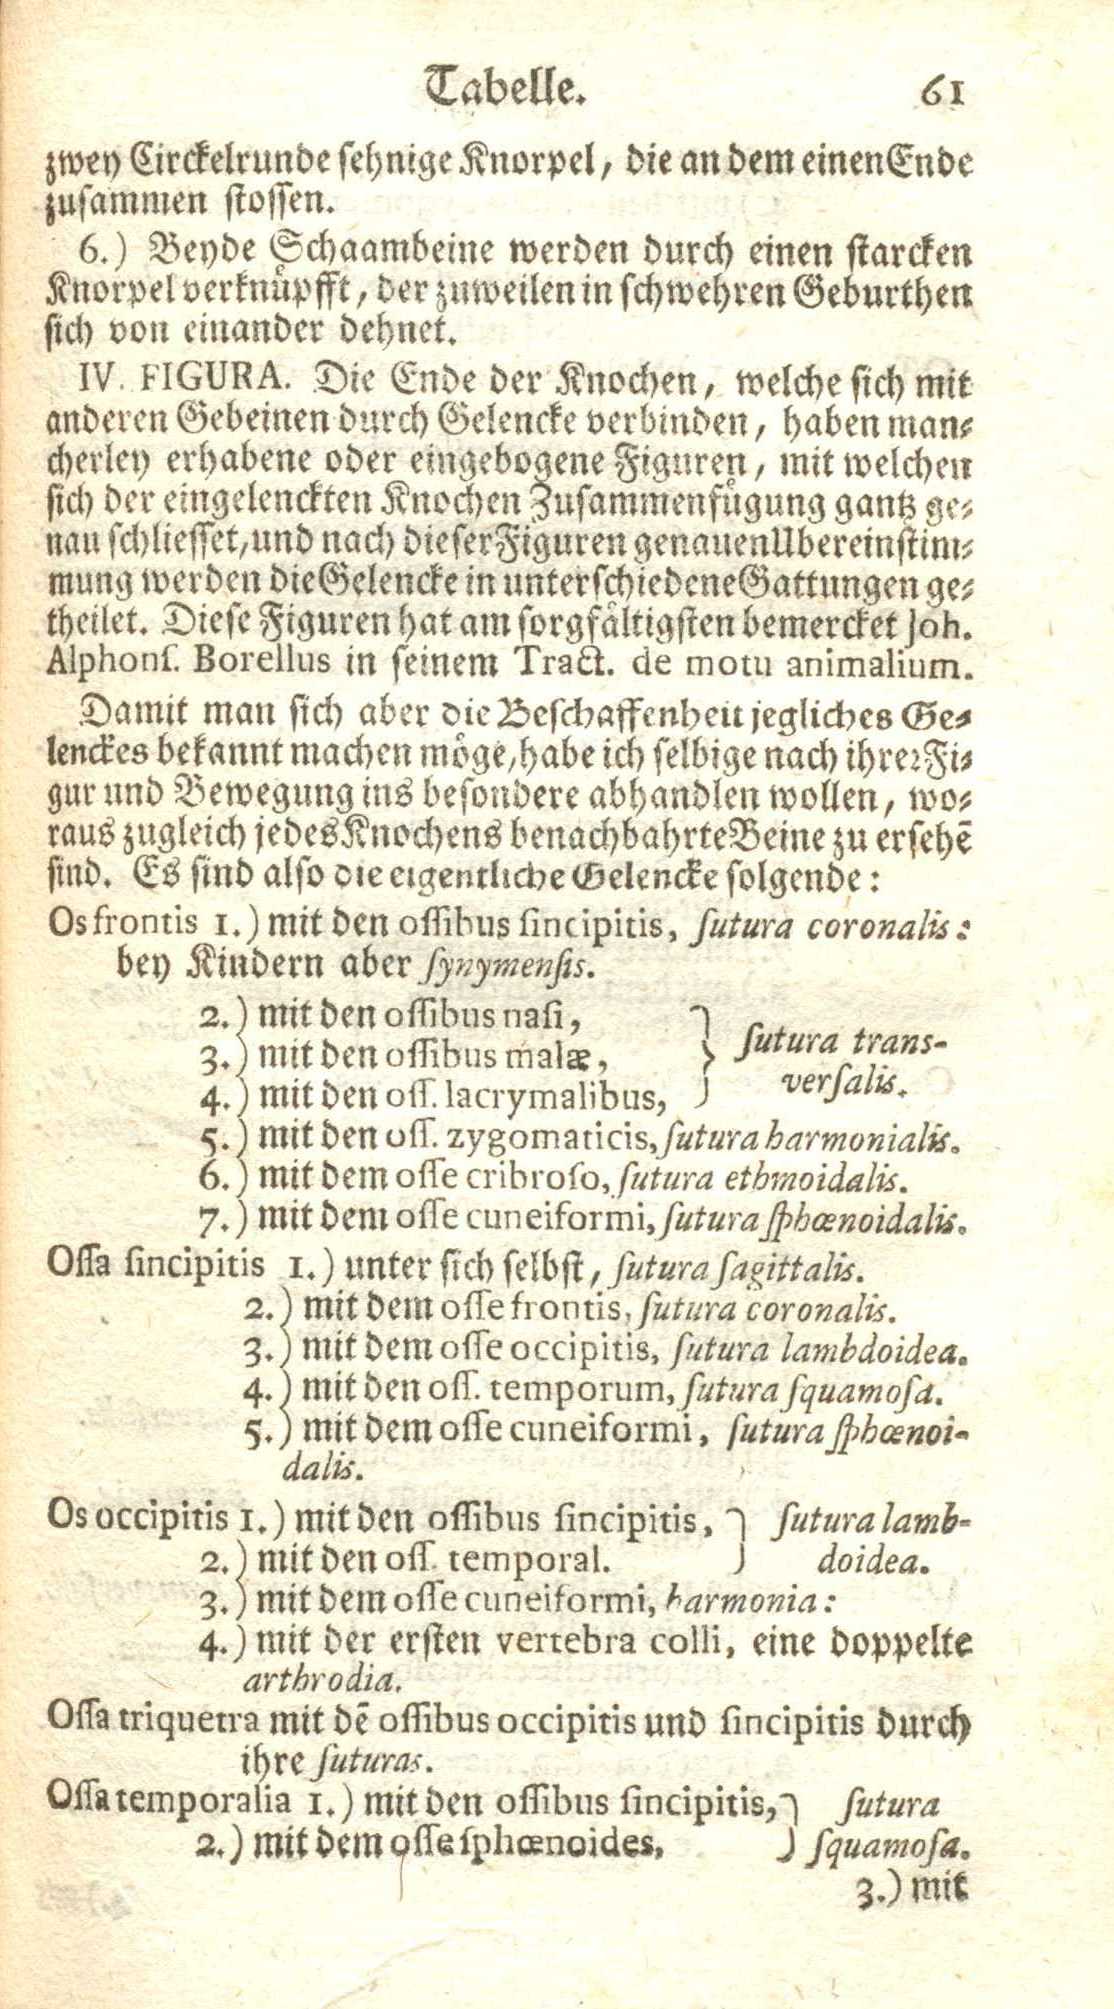 Tabelle. 61
zwey Circkelrunde sehnige Knorpel, die an dem einen Ende
zusammen stossen.
6.) Beyde Schaambeine werden durch einen starcken
Knorpel verknuͤpfft, der zuweilen in schwehren Geburthen
sich von einander dehnet.
IV. FIGURA. Die Ende der Knochen, welche sich mit
anderen Gebeinen durch Gelencke verbinden, haben man-
cherley erhabene oder eingebogene Figuren, mit welchen
sich der eingelenckten Knochen Zusammenfuͤgung gantz ge-
nau schliesset, und nach dieser Figuren genauen Ubereinstim-
mung werden die Gelencke in unterschiedene Gattungen ge-
theilet. Diese Figuren hat am sorgfaͤltigsten bemercket Joh.
Alphonſ. Borellus in seinem Tract. de motu animalium.
Damit man sich aber die Beschaffenheit jegliches Ge-
lenckes bekannt machen moͤge, habe ich selbige nach ihrer Fi-
gur und Bewegung ins besondere abhandlen wollen, wo-
raus zugleich jedes Knochens benachbahrte Beine zu ersehē
sind. Es sind also die eigentliche Gelencke folgende:
Os frontis 1.) mit den oſſibus ſincipitis, ſutura coronalis:
bey Kindern aber ſynymenſis.
2.) mit den oſſibus naſi,
3.) mit den oſſibus malæ, } ſutura trans-
4.) mit den oſſ. lacrymalibus, verſalis.
5.) mit den oſſ. zygomaticis, ſutura harmonialis.
6.) mit dem oſſe cribroſo, ſutura ethmoidalis.
7.) mit dem oſſe cuneiformi, ſutura ſphœnoidalis.
Oſſa ſincipitis 1.) unter sich selbst, ſutura ſagittalis.
2.) mit dem oſſe frontis, ſutura coronalis.
3.) mit dem oſſe occipitis, ſutura lambdoidea.
4.) mit den oſſ. temporum, ſutura ſquamoſa.
5.) mit dem oſſe cuneiformi, ſutura ſphœnoi-
dalis.
Os occipitis 1.) mit den oſſibus ſincipitis, } ſutura lamb-
2.) mit den oſſ. temporal. doidea.
3.) mit dem oſſe cuneiformi, harmonia:
4.) mit der ersten vertebra colli, eine doppelte
arthrodia.
Oſſa triquetra mit dē oſſibus occipitis und ſincipitis durch
ihre ſuturas.
Oſſa temporalia 1.) mit den oſſibus ſincipitis, } ſutura
2.) mit dem oſſe ſphœnoides, ſquamoſa.
3.) mit